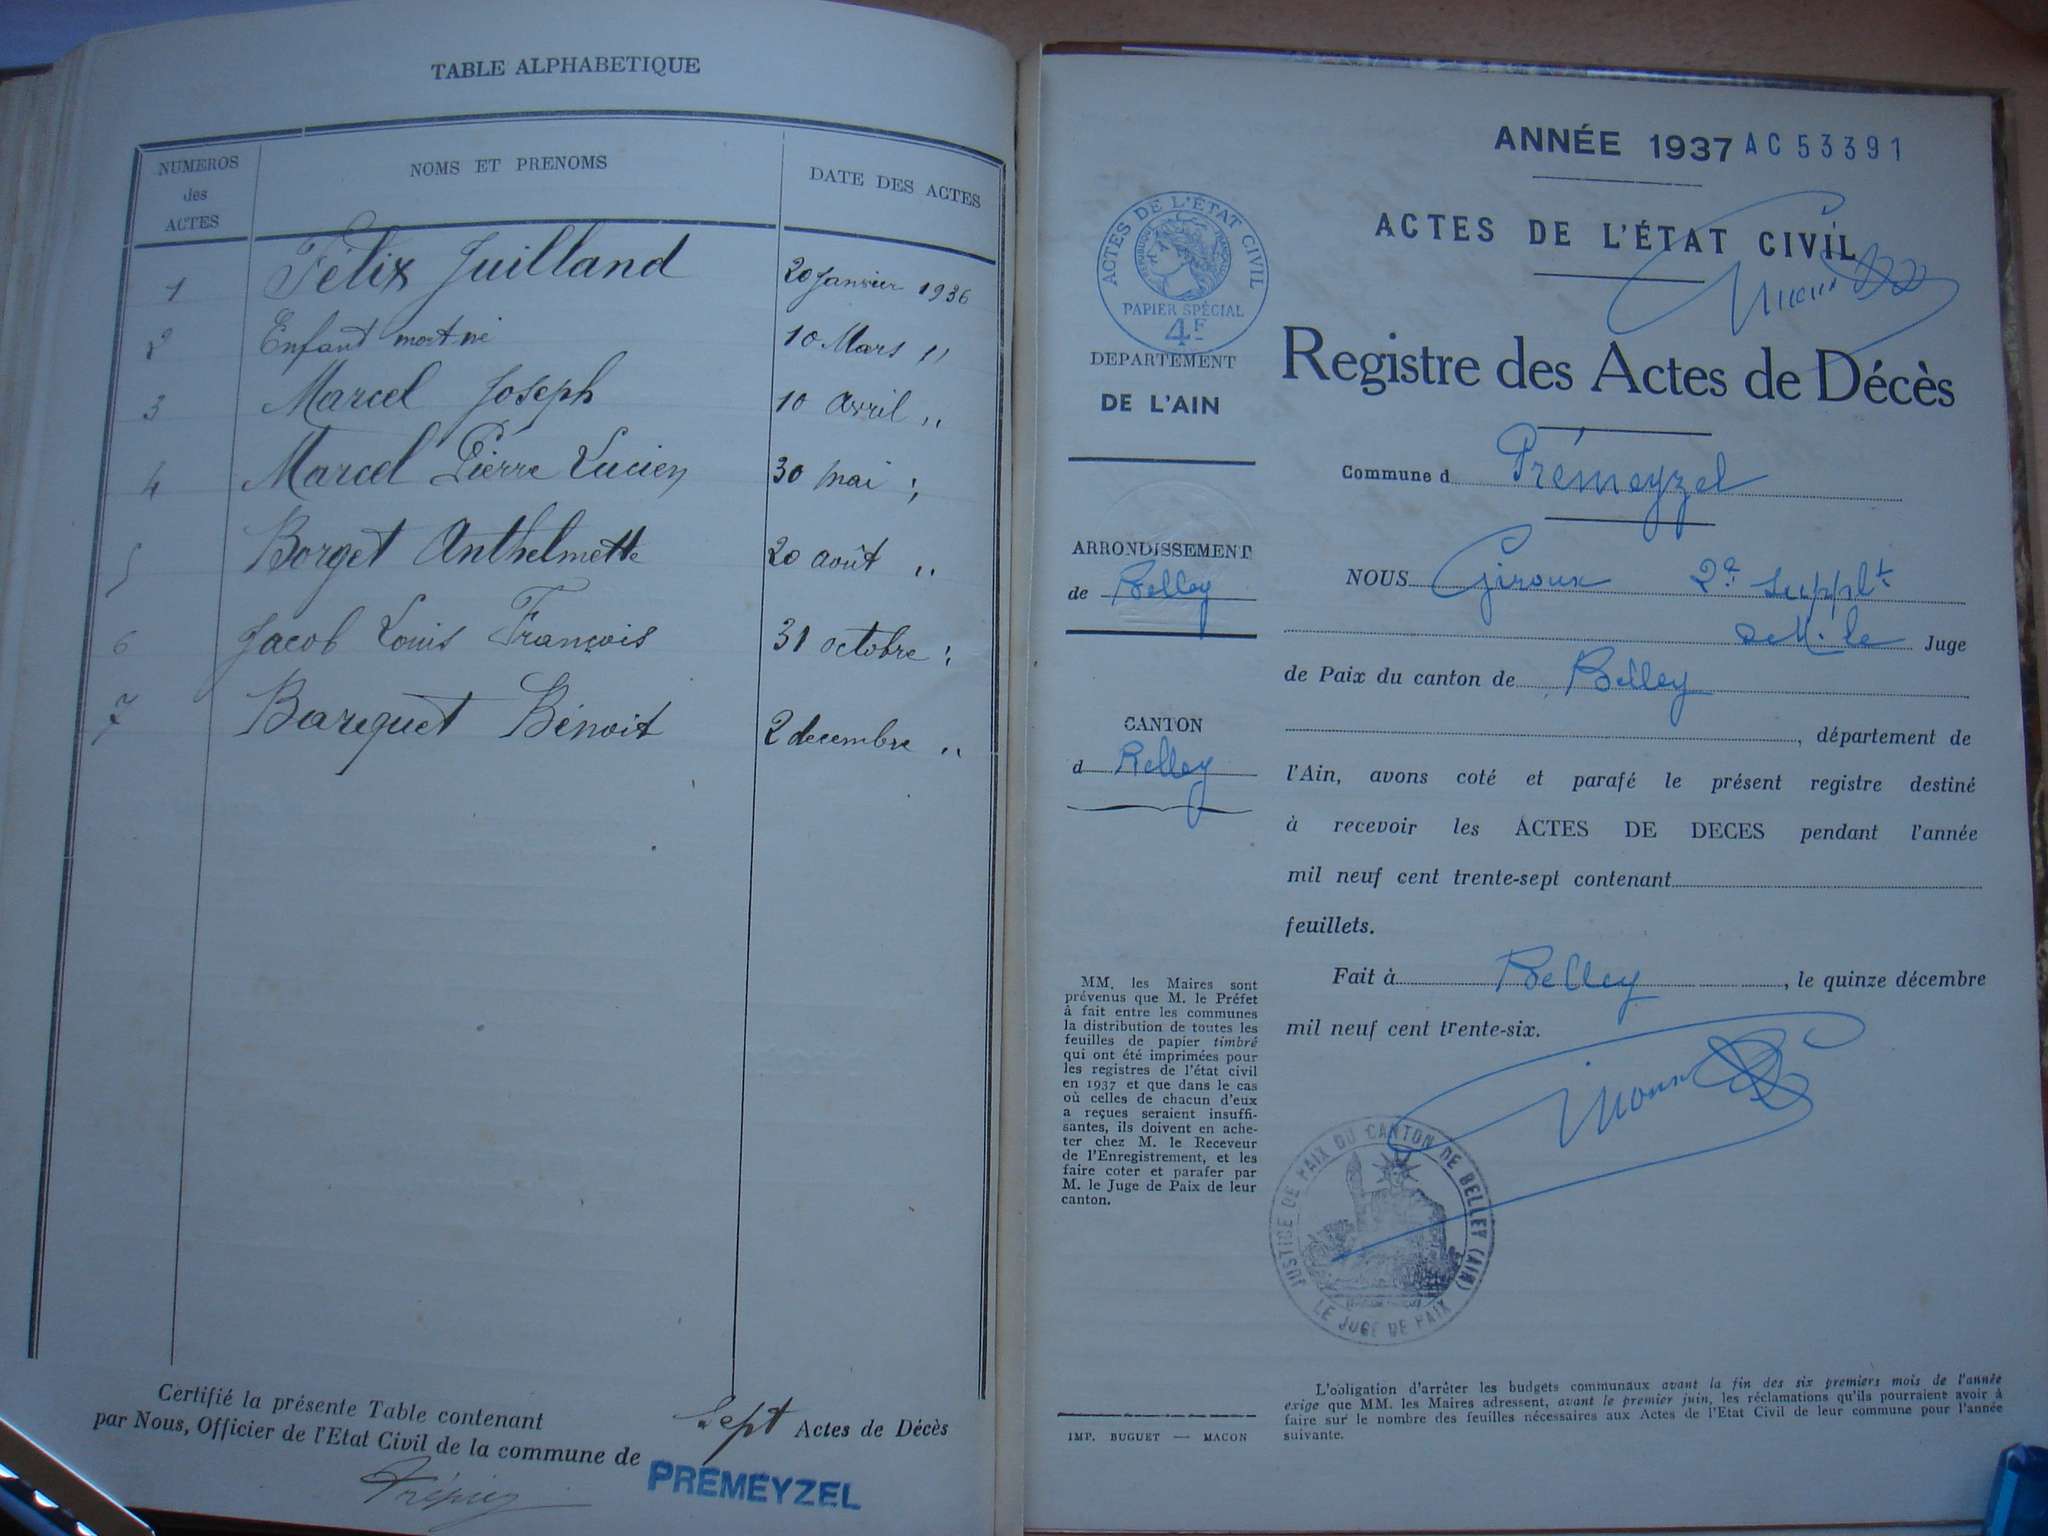 TABLE ALPHABETIQUE
NUMEROS des ACTES NOMS ET PRENOMS DATE DES ACTES
1 Félix Juilland 20 Janvier 1936
2 Enfant mort-né 10 Mars "
3 Marcel Joseph 10 Avril "
4 Marcel Pierre Lucien 30 Mai "
5 Borget Anthelmette 20 août "
6 Jacob Louis François 31 octobre "
7 Barequet Bénoit 2 decembre "
Certifié la présente Table contenant Sept Actes de Décès
par Nous, Officier de l'Etat Civil de la commune de PREMEYZEL
ANNÉE 1937 AC 53391
ACTES DE L'ÉTAT CIVIL
ACTES DE L'ÉTAT CIVIL
RÉPUBLIQUE FRANÇAISE
PAPIER SPÉCIAL
4F
DEPARTEMENT
DE L'AIN
ARRONDISSEMENT
de Belley
CANTON
d Belley
MM. les Maires sont
prévenus que M. le Préfet
à fait entre les communes
la distribution de toutes les
feuilles de papier timbré
qui ont été imprimées pour
les registres de l'état civil
en 1937 et que dans le cas
où celles de chacun d'eux
a reçues seraient insuffi-
santes, ils doivent en ache-
ter chez M. le Receveur
de l'Enregistrement, et les
faire coter et parafer par
M. le Juge de Paix de leur
canton.
IMP. BUGUET — MACON
Registre des Actes de Décès
Commune d Prémeyzel
NOUS Giroux 2e Supplt
de M. le Juge
de Paix du canton de Belley
, département de
l'Ain, avons coté et parafé le présent registre destiné
à recevoir les ACTES DE DECES pendant l'année
mil neuf cent trente-sept contenant
feuillets.
Fait à Belley, le quinze décembre
mil neuf cent trente-six.
JUSTICE DE PAIX DU CANTON DE BELLEY (AIN)
LE JUGE DE PAIX
L'obligation d'arrêter les budgets communaux avant la fin des six premiers mois de l'année
exige que MM. les Maires adressent, avant le premier juin, les réclamations qu'ils pourraient avoir à
faire sur le nombre des feuilles nécessaires aux Actes de l'Etat Civil de leur commune pour l'année
suivante.